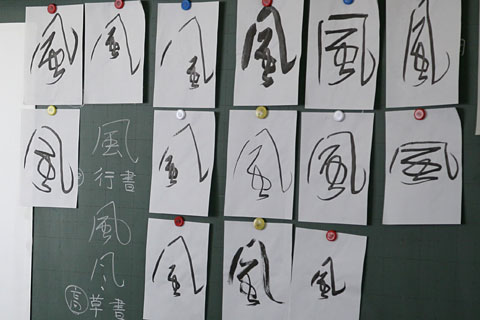 風 風 風 風 風 風
風 風 風 風 風
風 風 風
風
行書
風
风
高 草書